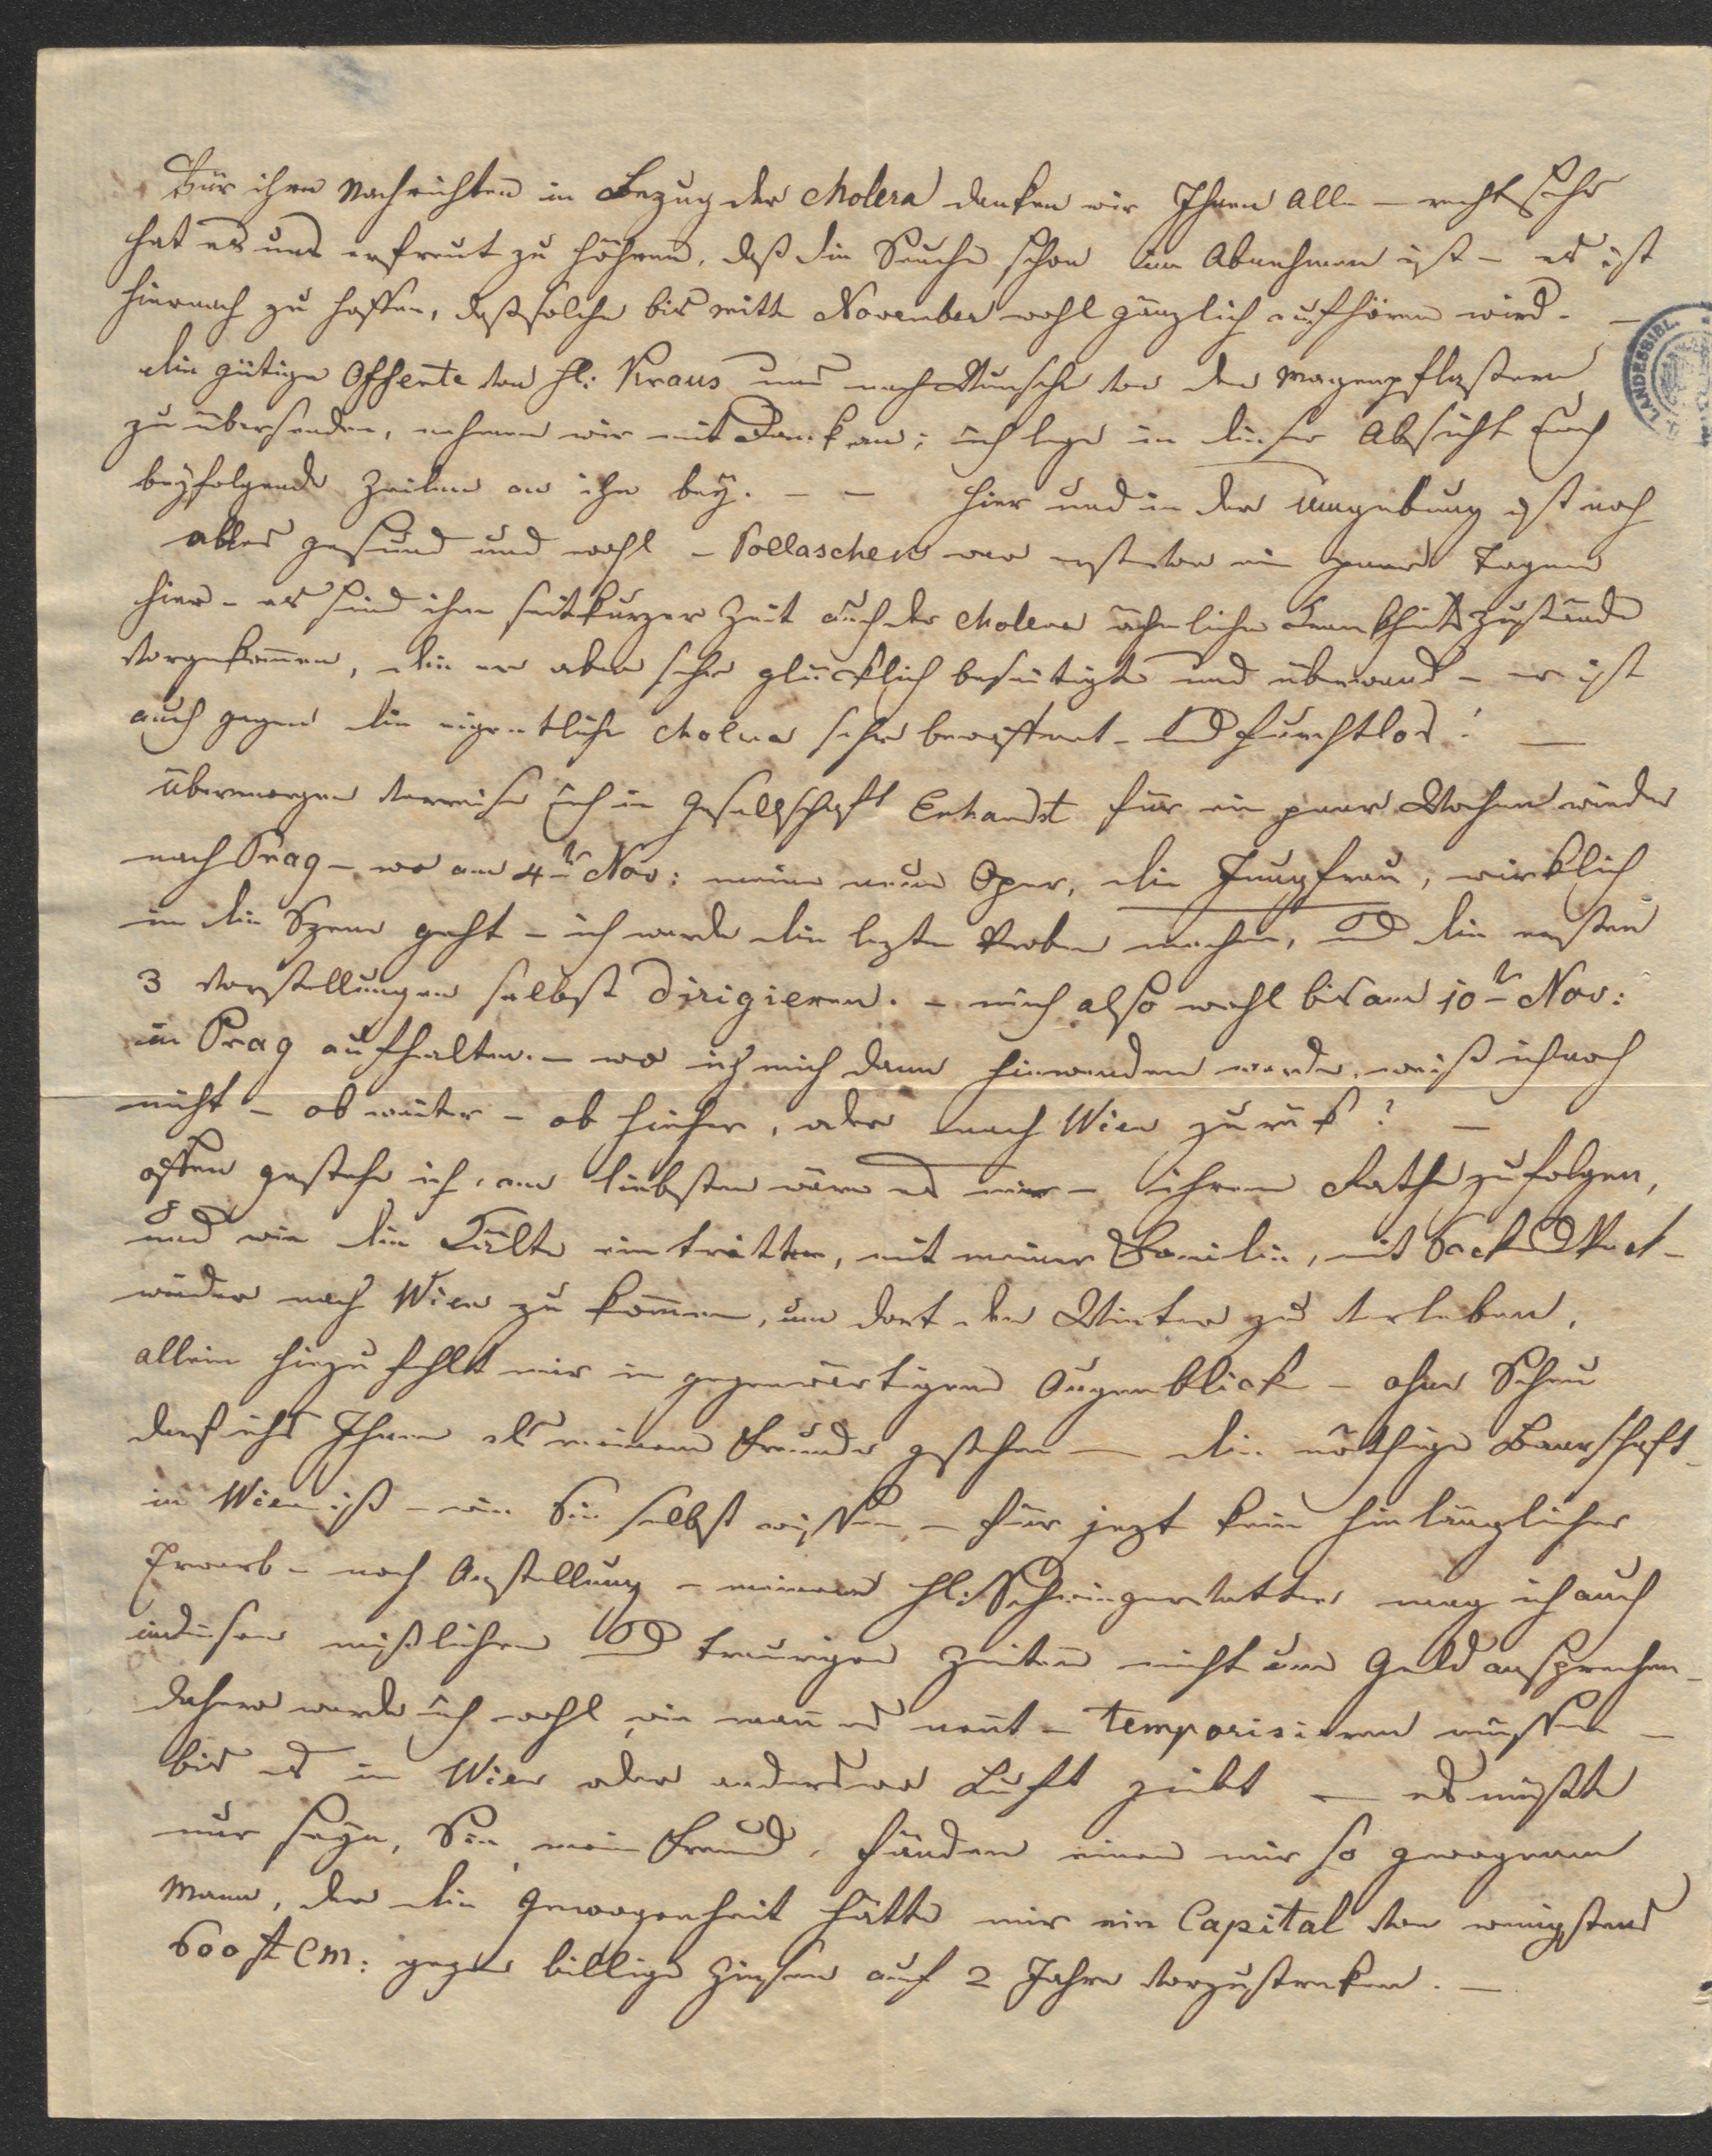 Für ihre Nachrichten in Bezug der Cholera danken wir Ihnen alle – recht sehr
hat es uns erfreut zu höhren, daß die Seuche schon im Abnehmen ist – es ist
hiernach zu hoffen, daß solche bis mitte November wohl gänzlich aufhören wird. –
die gütige Offerte von H: Kraus uns nach Wunsch von den Magenpflastern
zu übersenden, nehmen wir mit Dank an; ich lege in dieser Absicht auch
beyfolgende Zeilen an ihn bey. – – hier und in der Umgebung ist noch
alles gesund und wohl – Pollaschek war erst vor ein paar Tagen
hier – es sind ihm seit kurzer Zeit auch der Cholera ähnliche Krankheitszustände
vorgekommen, die er aber sehr glücklich beseitigte und überwand – er ist
auch gegen die eigentliche Cholera sehr bewaffnet – und furchtlos! —
übermorgen verreise ich in Gesellschaft für ein paar Wochen wieder
nach Prag – wo am 4ten Nov: meine neue Oper, die Jungfrau, wirklich
in die Szene geht – ich werde die lezten Proben machen, und die ersten
3 Vorstellungen selbst dirigieren. – mich also wohl bis am 10ten Nov:
in Prag aufhalten. – wo ich mich dann hinwenden werde, weiß ich noch
nicht – ob weiter – ob hieher, oder nach Wien zurük? –
offen gestehe ich, am liebsten wäre es mir – ihrem Rathe zu folgen,
und wie die Kälte eintritt, mit meiner Familie, mit Sack und Pack –
wieder nach Wien zu kommen, um dort den Winter zu verleben.
allein hiezu fehlt mir in gegenwärtigem Augenblick – ohne Scheu
darf ichs Ihnen als meinem Freunde gestehen — die nöthige Baarschaft –
in Wien ist – wie Sie selbst wissen – für jezt kein hinlänglicher
Erwerb – noch Anstellung – meinen H: Schwiegervatter mag ich auch
in diesen mißlichen und traurigen Zeiten nicht um Geld ansprechen –
daher werde ich wohl wie man es nent – temporisieren müssen –
bis es in Wien oder anderswo Luft giebt — es müßte
nur seyn, Sie, mein Freund, fänden einen mir so gewogenen
Mann, der die Gewogenheit hätte mir ein Capital von wenigstens
600 fl CM: gegen billige Zinsen auf 2 Jahre vorzustreken. —
LANDESBIBL.